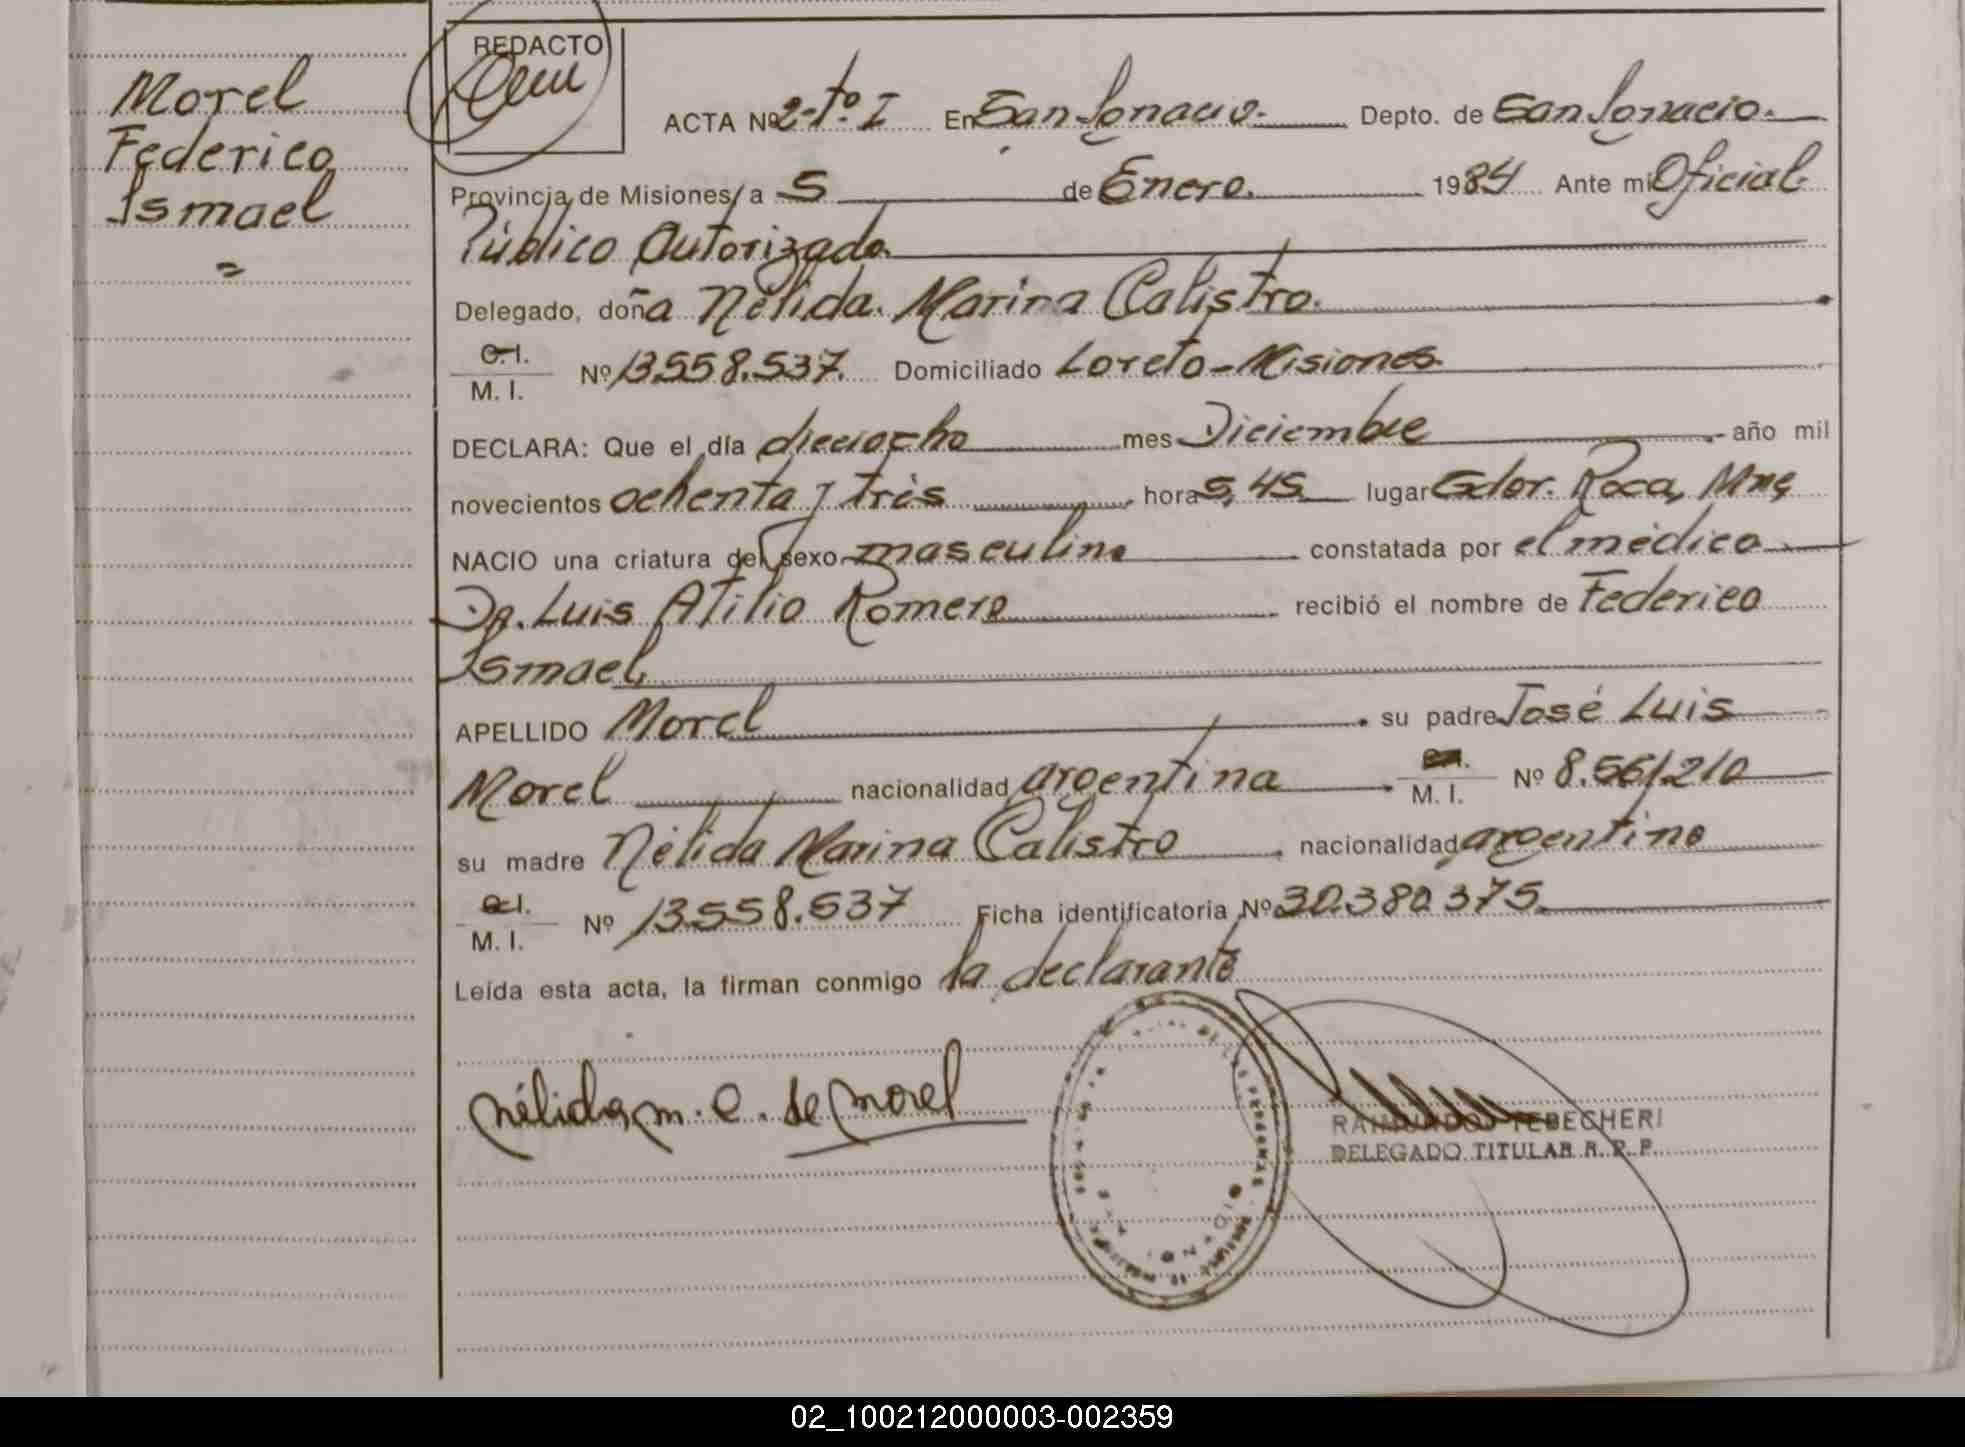 Morel
Federico
Ismael
=
REDACTO
ACTA Nº 2-Tº. I En San Ignacio. Depto. de San Ignacio.
Provincia de Misiones, a 5 de Enero. 1984 Ante mi Oficial
Público Autorizado.
Delegado, doña Nélida. Marina Calistro.
C. I.
M. I.
Nº 13.558.537. Domiciliado Loreto-Misiones.
DECLARA: Que el día dieciocho mes Diciembre año mil
novecientos ochenta y trés hora 5,45 lugar Gdor. Roca, Mnes
NACIO una criatura del sexo masculino constatada por el médico
Dr. Luis Atilio Romero recibió el nombre de Federico
Ismael,
APELLIDO Morel su padre José Luis
Morel nacionalidad argentina
M. I.
Nº 8.561.210
su madre Nélida Marina Calistro nacionalidad argentina
C. I.
M. I.
Nº 13.558.537 Ficha identificatoria Nº 30.380.375.
Leída esta acta, la firman conmigo la declarante
Nélida m. C. de Morel
DE LAS PERSONAS
RAIMUNDO TEBECHERI
DELEGADO TITULAR R. P. P.
02_100212000003-002359